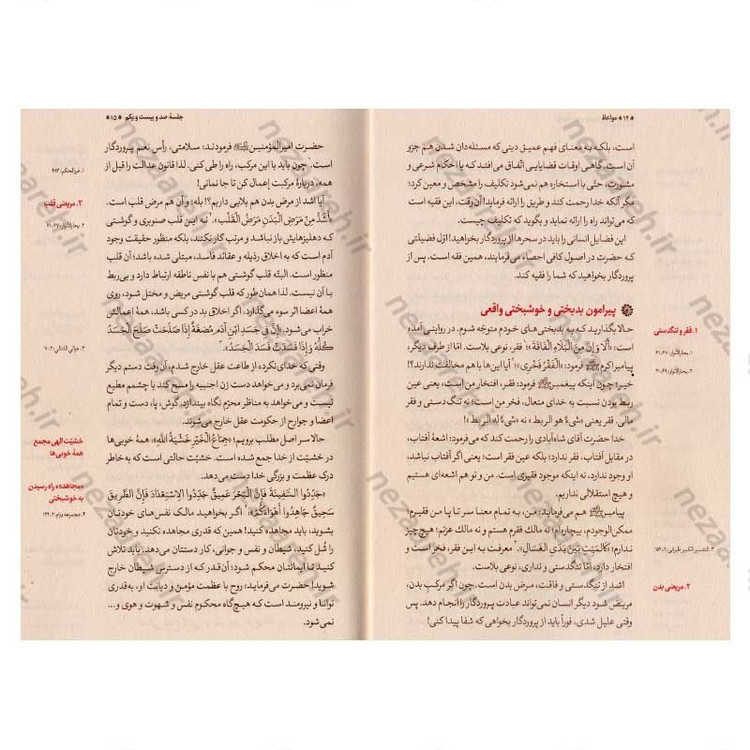 ۱۴ * مواعظ
است، بلکه به معنای فهم عمیق دینی که مسئله‌دان شدن هم جزو
آن است. گاهی اوقات قضایایی اتّفاق می‌افتد که با احکام شرعی و
مشورت، حتّی با استخاره هم نمی‌شود تکلیف را مشخص و معین کرد؛
مگر آنکه خدا رحمت کند و طریق را ارائه فرماید! آن وقت، این فقیه است
که می‌تواند راه را ارائه نماید و بگوید که تکلیف چیست.
این فضایل انسانی را باید در سحرها از پروردگار بخواهید! اوّل فضیلتی
که حضرت در اصول کافی احصاء می‌فرمایند، همین فقه است. پس از
پروردگار بخواهید که شما را فقیه کند.
پیرامون بدبختی و خوشبختی واقعی
۱. فقر و تنگدستی
حالا بگذارید که به بدبختی‌های خودم متوجّه شوم. در روایتی آمده
است: «أَلَا وَ إِنَّ مِنَ الْبَلَاءِ الْفَاقَةَ»؛ فقر، نوعی بلاست. امّا از طرف دیگر،
پیامبر اکرم ﷺ هم فرمودند: «الْفَقْرُ فَخْرِی» آیا این‌ها با هم مخالفت ندارند؟!
خیر! چون اینکه پیغمبر ﷺ فرمود: فقر، افتخار من است؛ یعنی عین
ربط بودن نسبت به خدای متعال، فخر من است؛ نه تنگ دستی و فقر
مالی. فقر یعنی: «شیءٌ هو الربط»؛ نه «شیءٌ له الربط».
خدا حضرت آقای شاه‌آبادی را رحمت کند که می‌فرمود: اشعهٔ آفتاب،
در مقابل آفتاب، فقر ندارد؛ بلکه عین فقر است؛ یعنی اگر آفتاب نباشد،
او وجود ندارد، نه اینکه موجود فقیری است. من و تو هم اشعه‌ای هستیم
و هیچ استقلالی نداریم.
پیامبر ﷺ هم می‌فرماید: من، به تمام معنا سر تا پا من فقیرم!
ممکن الوجودم، بیچاره‌ام! نه مالک فقرم هستم و نه مالک عزّتم؛ هیچ چیز
ندارم؛ «كَالْمَیِّتِ بَیْنَ یَدَیِ الْغَسَّالِ». معرفت به این فقر، فخر است و
افتخار دارد. امّا تنگدستی و نداری، نوعی بلاست.
۲. مریضی بدن
اشد از تنگدستی و فاقت، مرض بدن است. چون اگر مرکبِ بدن،
مریض شود دیگر انسان نمی‌تواند عبادت پروردگار را انجام دهد. پس
وقتی علیل شدی، فوراً باید از پروردگار بخواهی که شفا پیدا کنی!
جلسهٔ صد و بیست و یکم * ۱۵
حضرت امیرالمؤمنین فرمودند: سلامتی، رأس نعم پروردگار
است. چون باید با این مرکب، راه را طی کنی. لذا قانون عدالت را قبل از
همه، دربارهٔ مرکبت اعمال کن تا جا نمانی!
۱. غررالحکم،
۳. مریضی قلب
آیا اشد از مرض بدن هم بلایی داریم؟! بله؛ و آن هم مرض قلب است.
«أَشَدُّ مِنْ مَرَضِ الْبَدَنِ مَرَضُ الْقَلْبِ». نه این قلب صنوبری و گوشتی
که دهلیزهایش باز نباشد و مرتب کار نکند، بلکه منظور حقیقت وجود
آدم است که به اخلاق رذیله و عقائد فاسد، مبتلی شده باشد؛ آن قلب
منظور است. البته قلب گوشتی هم با نفس ناطقه ارتباط دارد و بی‌ربط
با آن نیست. لذا همان‌طور که قلب گوشتی مریض و مختل شود، روی
همهٔ اعضا اثر سوء می‌گذارد، اگر اخلاق بد در کسی باشد، همهٔ اعمالش
خراب می‌شود. «إِنَّ فِی جَسَدِ ابْنِ آدَمَ مُضْغَةً إِذَا صَلَحَتْ صَلَحَ الْجَسَدُ
كُلُّهُ وَ إِذَا فَسَدَتْ فَسَدَ الْجَسَدُ».
وقتی که خدای نکرده از طاعت عقل خارج شدم، آن وقت دستم دیگر
فرمان نمی‌برد و می‌خواهد دست زن اجنبیه را مسح کند یا چشمم مطیع
نیست و می‌خواهد به مناظر محرّم نگاه بیندازد. گوش، پا، دست و تمام
اعضا و جوارح از حکومت عقل خارج می‌شوند.
خشیّت الهی مجمع
همهٔ خوبی‌ها
حالا سر اصل مطلب برویم؛ «جِمَاعُ الْخَیْرِ خَشْیَةُ اللَّهِ»؛ همهٔ خوبی‌ها
در خشیّت از خدا جمع شده است. خشیّت حالتی است که به خاطر
درک عظمت و بزرگی خدا دست می‌دهد.
«مجاهده» راه رسیدن
به خوشبختی
«جَدِّدُوا السَّفِینَةَ فَإِنَّ الْبَحْرَ عَمِیقٌ جَدِّدُوا الِاسْتِعْدَادَ فَإِنَّ الطَّرِیقَ
سَحِیقٌ جَاهِدُوا أَهْوَاءَكُمْ». اگر بخواهید مالک نفس خودتان
بشوید، باید مجاهده کنید! همین که قدری مجاهده نکنید و خودتان
را شُل کنید، شیطان و نفس و جوانی، کار دستتان می‌دهد. باید تلاش
کنید تا ایمانتان محکم شود؛ آن‌قدر که از دسترس شیطان خارج
شوید! حضرت می‌فرماید: روح با عظمت مؤمن و دیانت او، به‌قدری
توانا و نیرومند است که هیچ‌گاه محکوم نفس و شهوت و هوی و...
نمی‌شود.
nezareh.ir